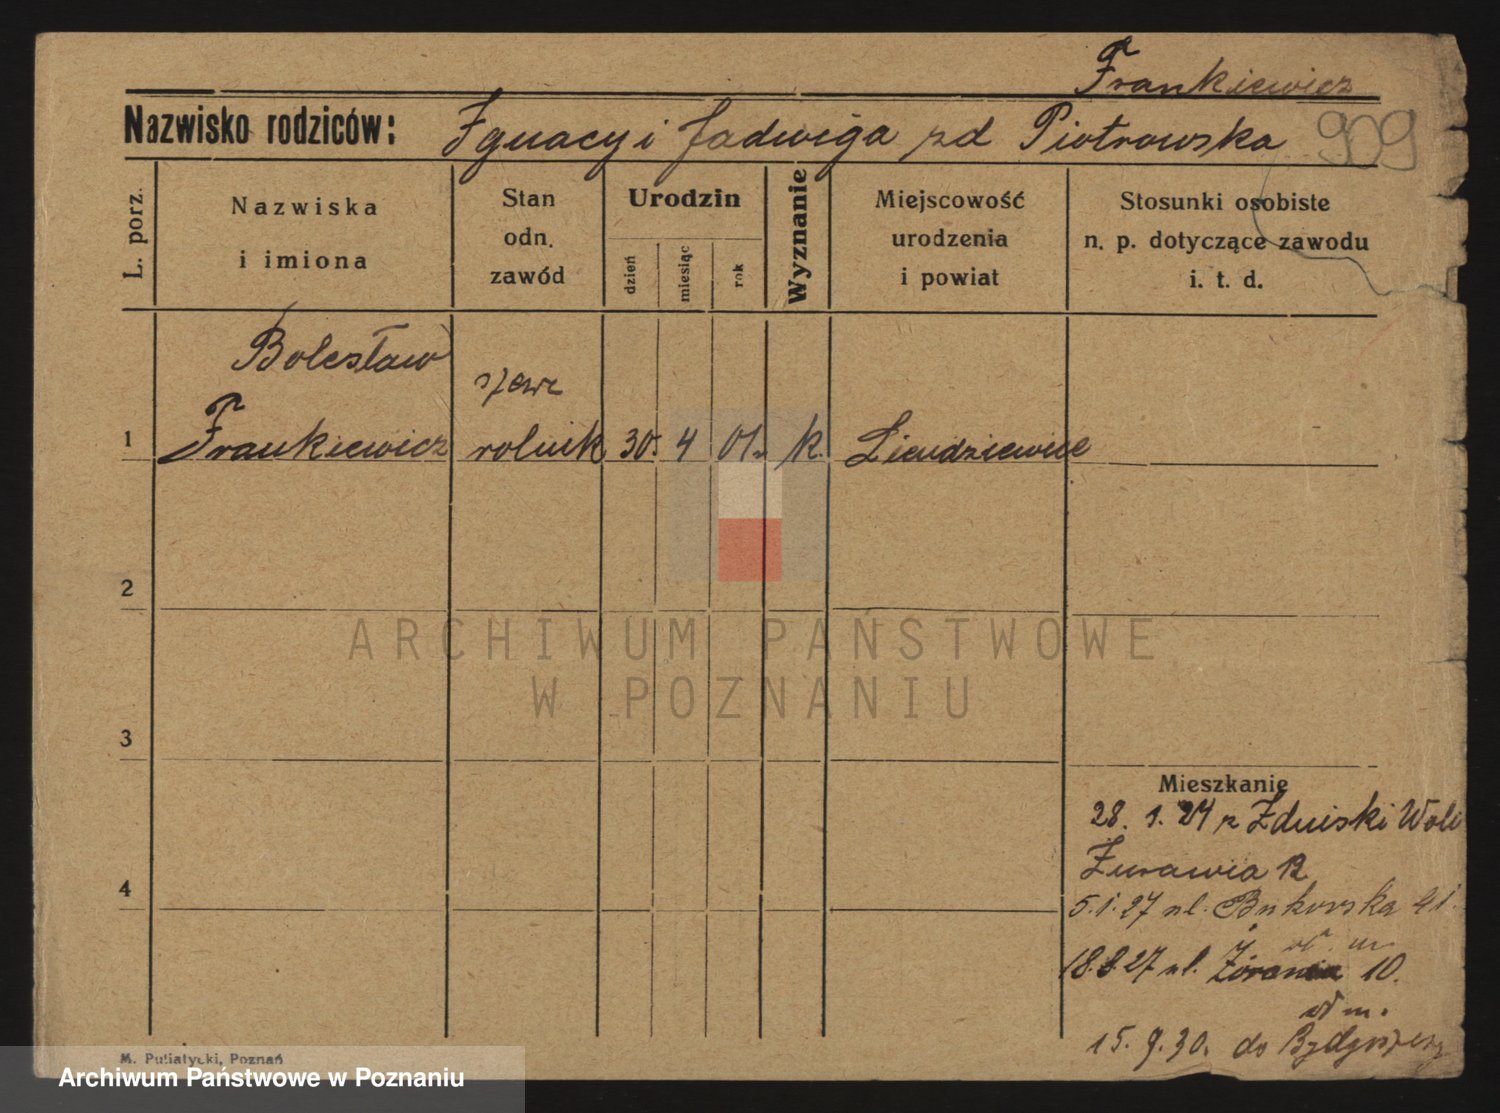 Frankiewicz
Nazwisko rodziców: Ignacy i Jadwiga zd Piotrowska 909
L. porz.
Nazwiska
i imiona
Stan
odn.
zawód
Urodzin
dzień
miesiąc
rok
Wyznanie
Miejscowość
urodzenia
i powiat
Stosunki osobiste
n. p. dotyczące zawodu
i. t. d.
Bolesław
szewc
1 Frankiewicz rolnik 30. 4 01. k.
2
3
4
ARCHIWUM PAŃSTWOWE
W POZNANIU
Mieszkanie
28. 1. 24 z Zduiski Woli
Żurawia 12
5.1.27 ul. Bukowska 41.
18.8.27 ul. 10.
15. 9. 30. do Bydgoszczy
M. Putiatycki, Poznań
Archiwum Państwowe w Poznaniu